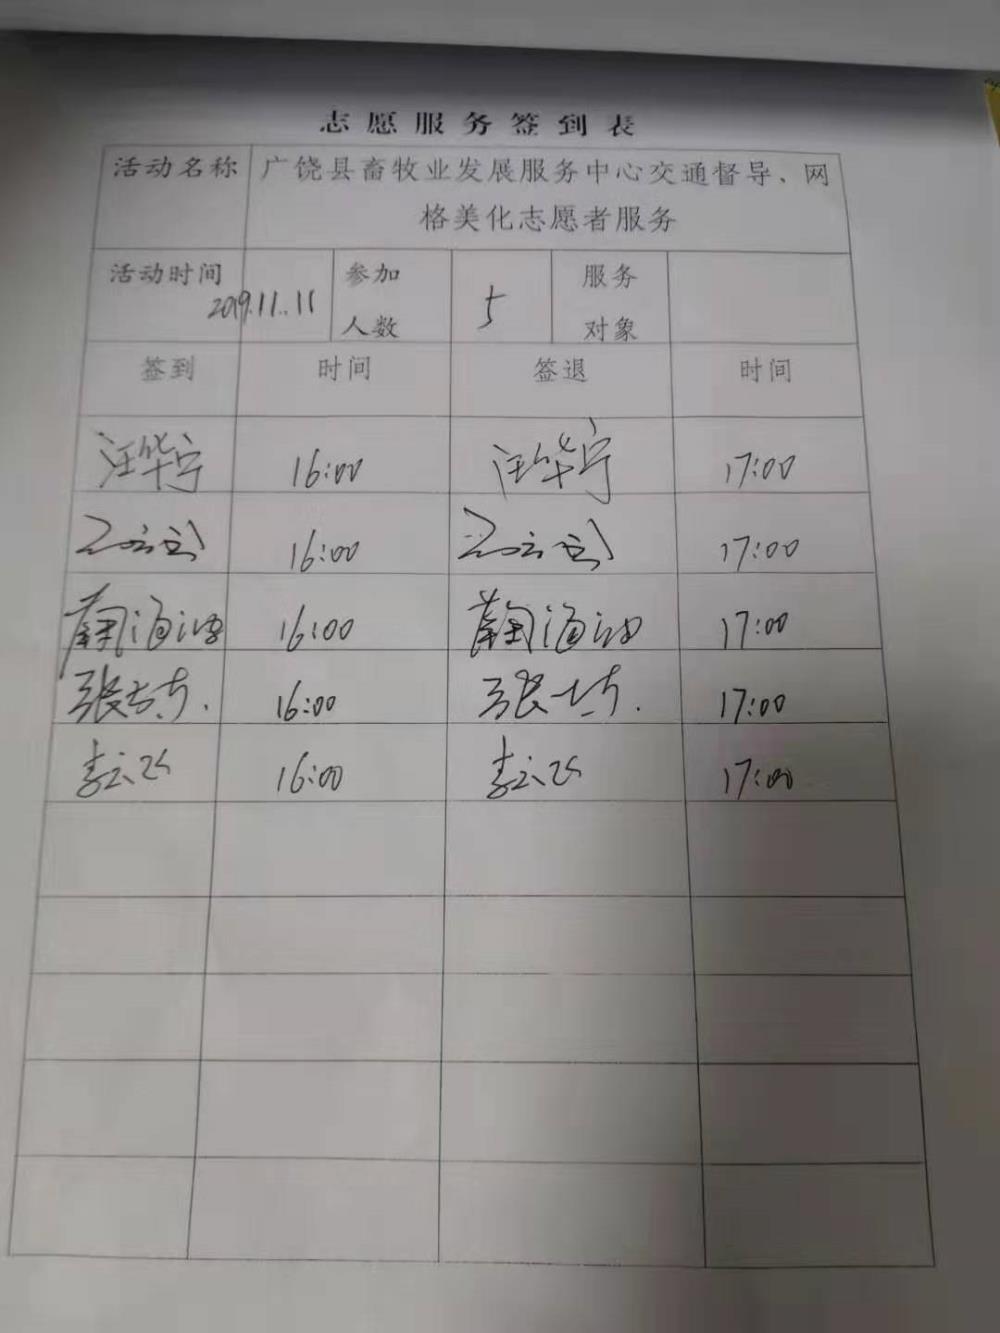 志愿服务签到表
活动名称 广饶县畜牧业发展服务中心交通督导、网
格美化志愿者服务
活动时间 2019.11.11 参加人数 5 服务对象
签到 时间 签退 时间
汪华宁 16:00 汪华宁 17:00
16:00 17:00
16:00 17:00
张 16:00 张 17:00
李 16:00 李 17:00